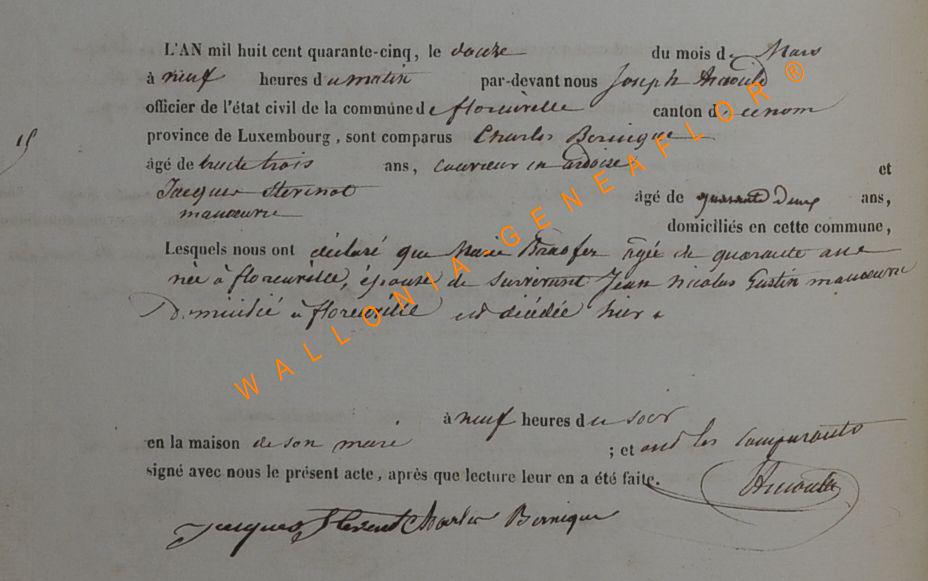 L'AN mil huit cent quarante-cinq, le douze du mois de Mars
à neuf heures du matin par-devant nous Joseph Arnould
officier de l'état civil de la commune de florenville canton de ce nom
province de Luxembourg, sont comparus Charles Bernique
15
âgé de trente trois ans, couvreur en ardoise et
Jacques âgé de quarante deux ans,
manoeuvre domiciliés en cette commune,
Lesquels nous ont déclaré que Marie agée de quarante ans
née à florenville, épouse de survivant Jean Nicolas Gustin manoeuvre
Domicilié à florenville est décédée hier
à neuf heures du soir
en la maison de son mari ; et ont les comparants
signé avec nous le présent acte, après que lecture leur en a été faite.
Arnould
Jacques Charles Bernique
WALLONIA GENEAFLOR®